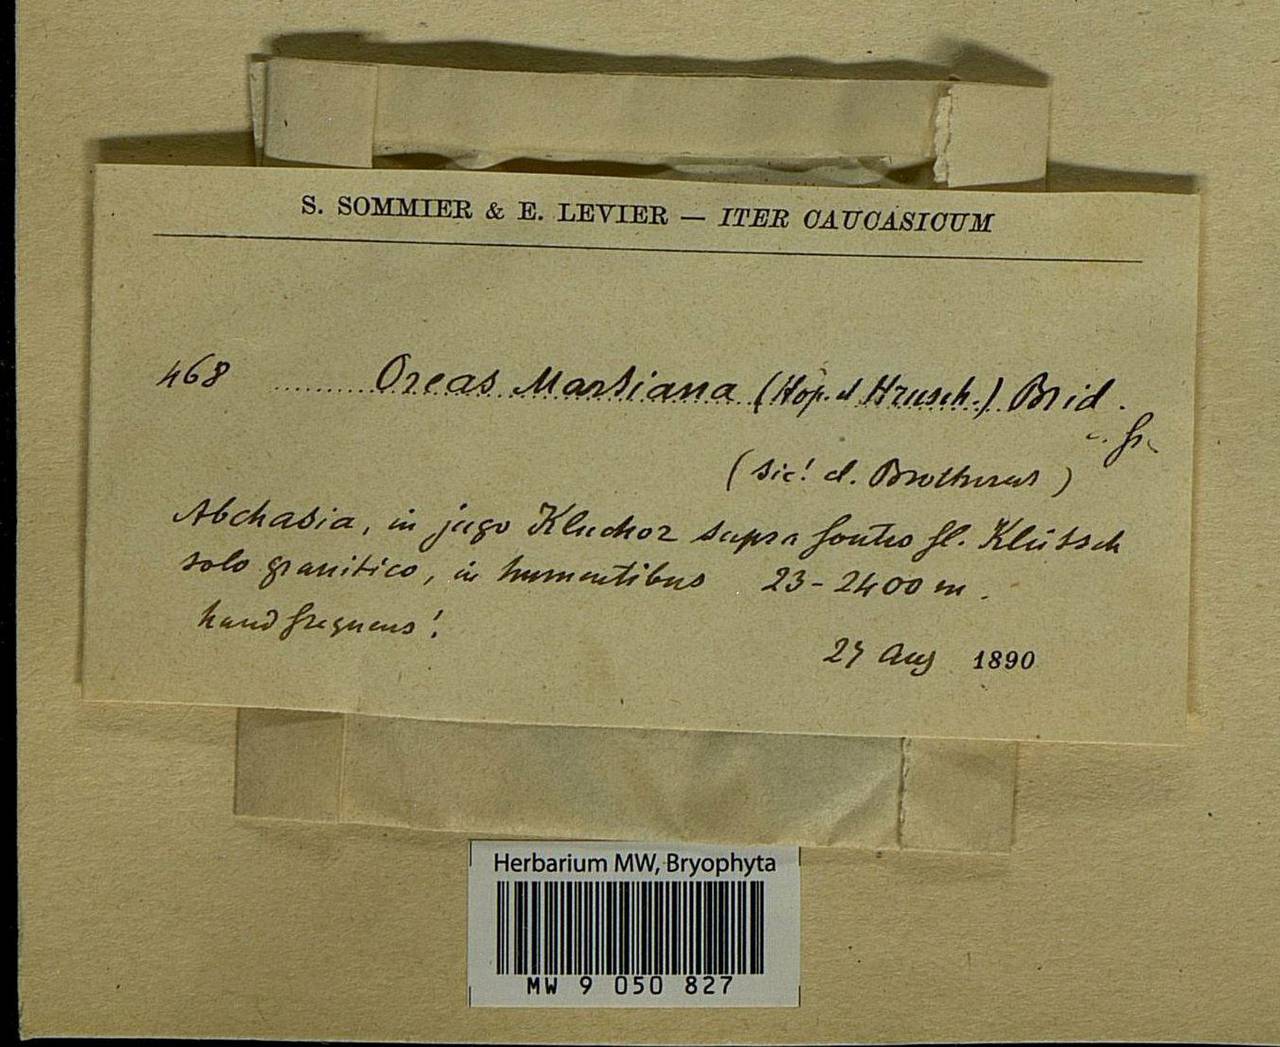 S. SOMMIER & E. LEVIER — ITER CAUCASICUM
468 Oreas Martiana (Hop. et Hrnsch.) Brid.
c. fr.
(sic! cl. Brotherus)
Abchasia, in jugo Kluchor supra fontes fl. Klütsch
solo granitico, in humentibus 23-2400 m.
haud frequens!
27 Aug 1890
Herbarium MW, Bryophyta
MW 9 050 827